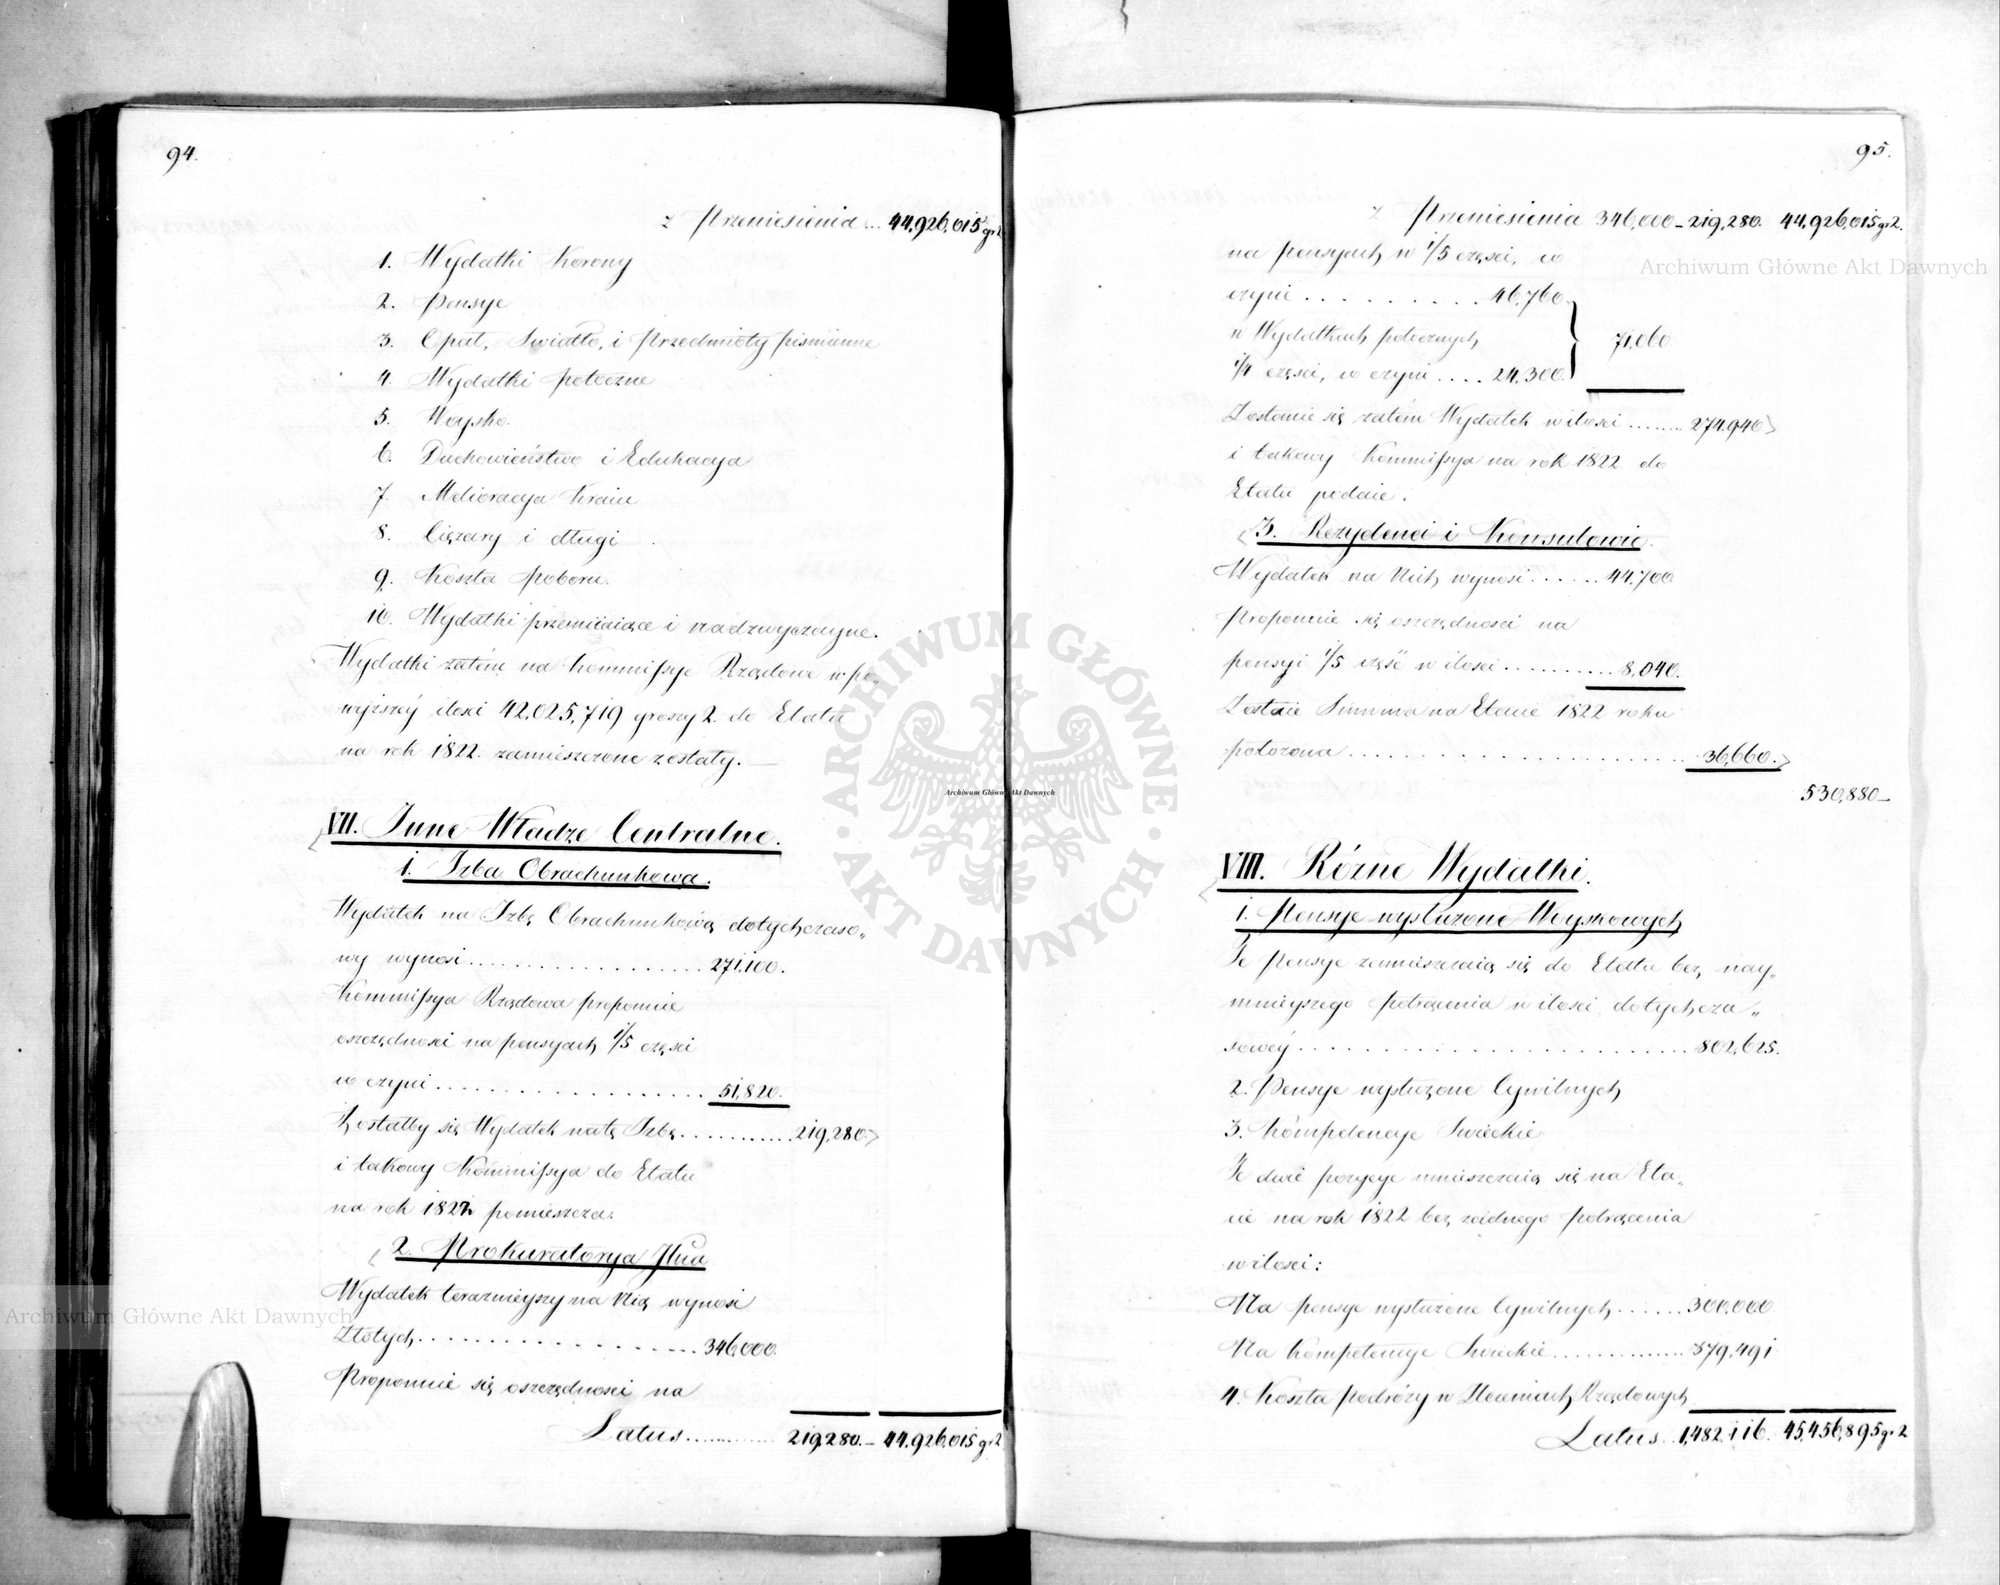 94.
z Przeniesienia ... 44,926,015 gr 2
1. Wydatki Korony
2. Pensye
3. Opał, Swiatło, i Przedmioty piśmienne
4. Wydatki potoczne
5. Woysko.
6. Duchowieństwo i Edukacya
7. Melioracya Kraiu
8. Ciężary i długi
9. Koszta poboru.
10. Wydatki przemiiaiące i nadzwyczayne.
Wydatki zatém na Kommissye Rządowe w po„
wyższéy ilosci 42,025,719 groszy 2. do Etatu
na rok 1822. zamieszczone zostały.
VII. Inne Władze Centralne.
1. Izba Obrachunkowa.
Wydatek na Izbę Obrachunkową dotychczaso„
wy wynosi .................... 271,100.
Kommissya Rządowa proponuie
oszczędnosci na pensyach 1/5 częsci
co czyni .................... 51,820.
Zostałby się Wydatek na tę Izbę ............ 219,280.
i takowy Kommissya do Etatu
na rok 1822 pomieszcza.
2. Prokuratorya Jlna
Wydatek teraznieyszy na Nią wynosi
Złotych .................... 346,000.
Proponuie się oszczędnosci na
Latus ............ 219,280.– 44,926,015 gr 2
95.
z Przeniesienia 346,000 – 219,280. 44,926,015 gr 2.
na pensyach w 1/5 częsci, co
czyni .......... 46,760.
w Wydatkach potocznych 71,060
1/4 częsci, co czyni .... 24,300.
Zostanie się zatém Wydatek w ilosci ....... 274,940
i takowy Kommissya na rok 1822 do
Etatu podaie.
3. Rezydenci i Konsulowie.
Wydatek na Nich wynosi ...... 44,700
Proponuie się oszczędnosci na
pensyi 1/5 część w ilosci .......... 8,040.
Zostaie Summa na Etacie 1822 roku
położona ........................ 36,660.
530,880 –
VIII. Różne Wydatki.
1. Pensye wysłużone Woyskowych
Te pensye zamieszczaią się do Etatu bez nay„
mnieyszego potrącenia w ilosci dotychcza„
sowéy .......................... 802,625.
2. Pensye wysłużone Cywilnych
3. Kompetencye Swieckie
Te dwie pozycye umieszczaią się na Eta„
cie na rok 1822 bez żadnego potrącenia
w ilosci:
Na pensye wysłużone Cywilnych ...... 300,000
Na Kompetencye Swieckie .............. 379,491
4. Koszta podróży w Zleceniach Rządowych
Latus .. 1,482,116. 45,456,895 gr 2
Archiwum Główne Akt Dawnych
Archiwum Główne Akt Dawnych
Archiwum Główne Akt Dawnych
ARCHIWUM GŁÓWNE
AKT DAWNYCH